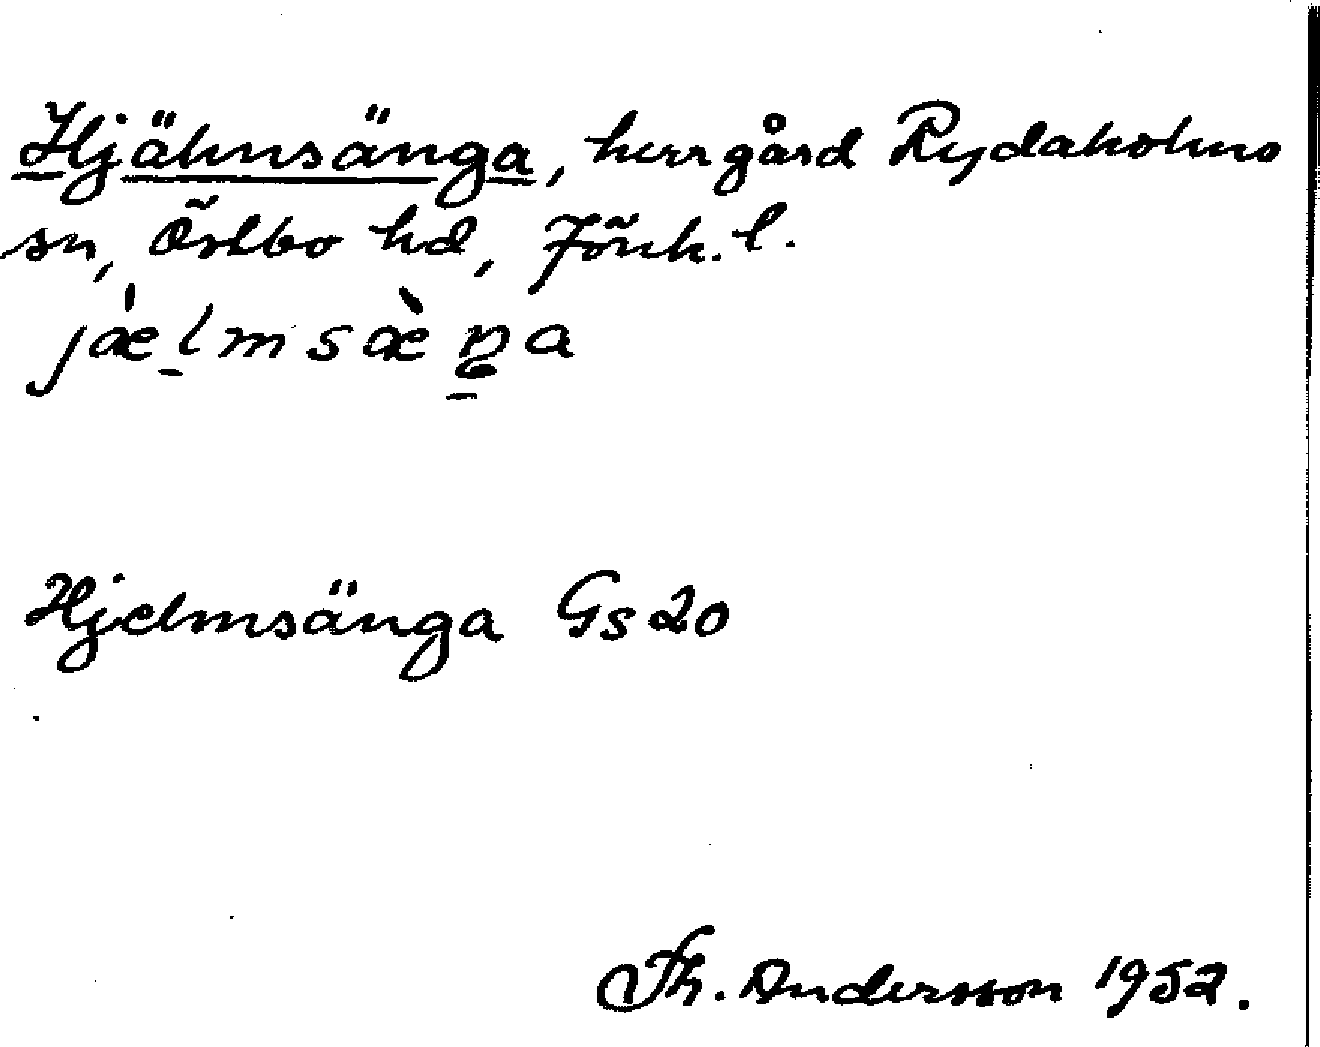 Hjälmsänga, herrgård Rydaholms
sn, Östbo hd, Jönk. l.
jǽlmsæ̀ŋa
Hjelmsänga Gs 20
Th. Andersson 1952.